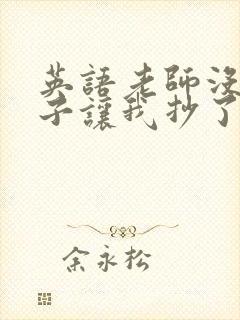 英語老師沒
子讓我抄了
余永松